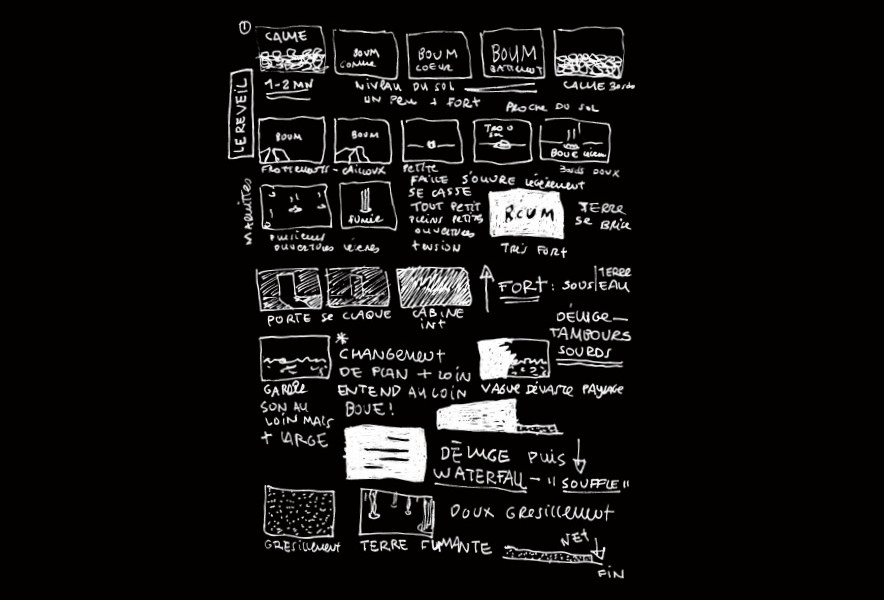 1
CALME
BOUM
BOUM
COEUR
BOUM
BATTEMENT
1-2 MN
NIVEAU DU SOL
CALME
UN PEU + FORT
PROCHE DU SOL
LE REVEIL
BOUM
BOUM
BOUE
FROTTEMENTS - CAILLOUX
PETITE
DOUX
FAILLE S'OUVRE LÉGÈREMENT
SE CASSE
TOUT PETIT
PLEINS PETITES
OUVERTURES
+ TENSION
MAQUETTES
FUMÉE
PLUSIEURS
OUVERTURES
BOUM
TERRE
SE BRISE
TRÈS FORT
PORTE SE CLAQUE
CABINE
INT
FORT : SOUS TERRE
EAU
DÉLUGE
TAMBOURS
SOURDS
*
CHANGEMENT
DE PLAN + LOIN
ENTEND AU LOIN
BOUE!
GARDER
SON AU
LOIN MAIS
+ LARGE
VAGUE DÉVASTE PAYSAGE
DÉLUGE PUIS
WATERFALL - "SOUFFLE"
DOUX GRESILLEMENT
GRESILLEMENT
TERRE FUMANTE
NET
FIN